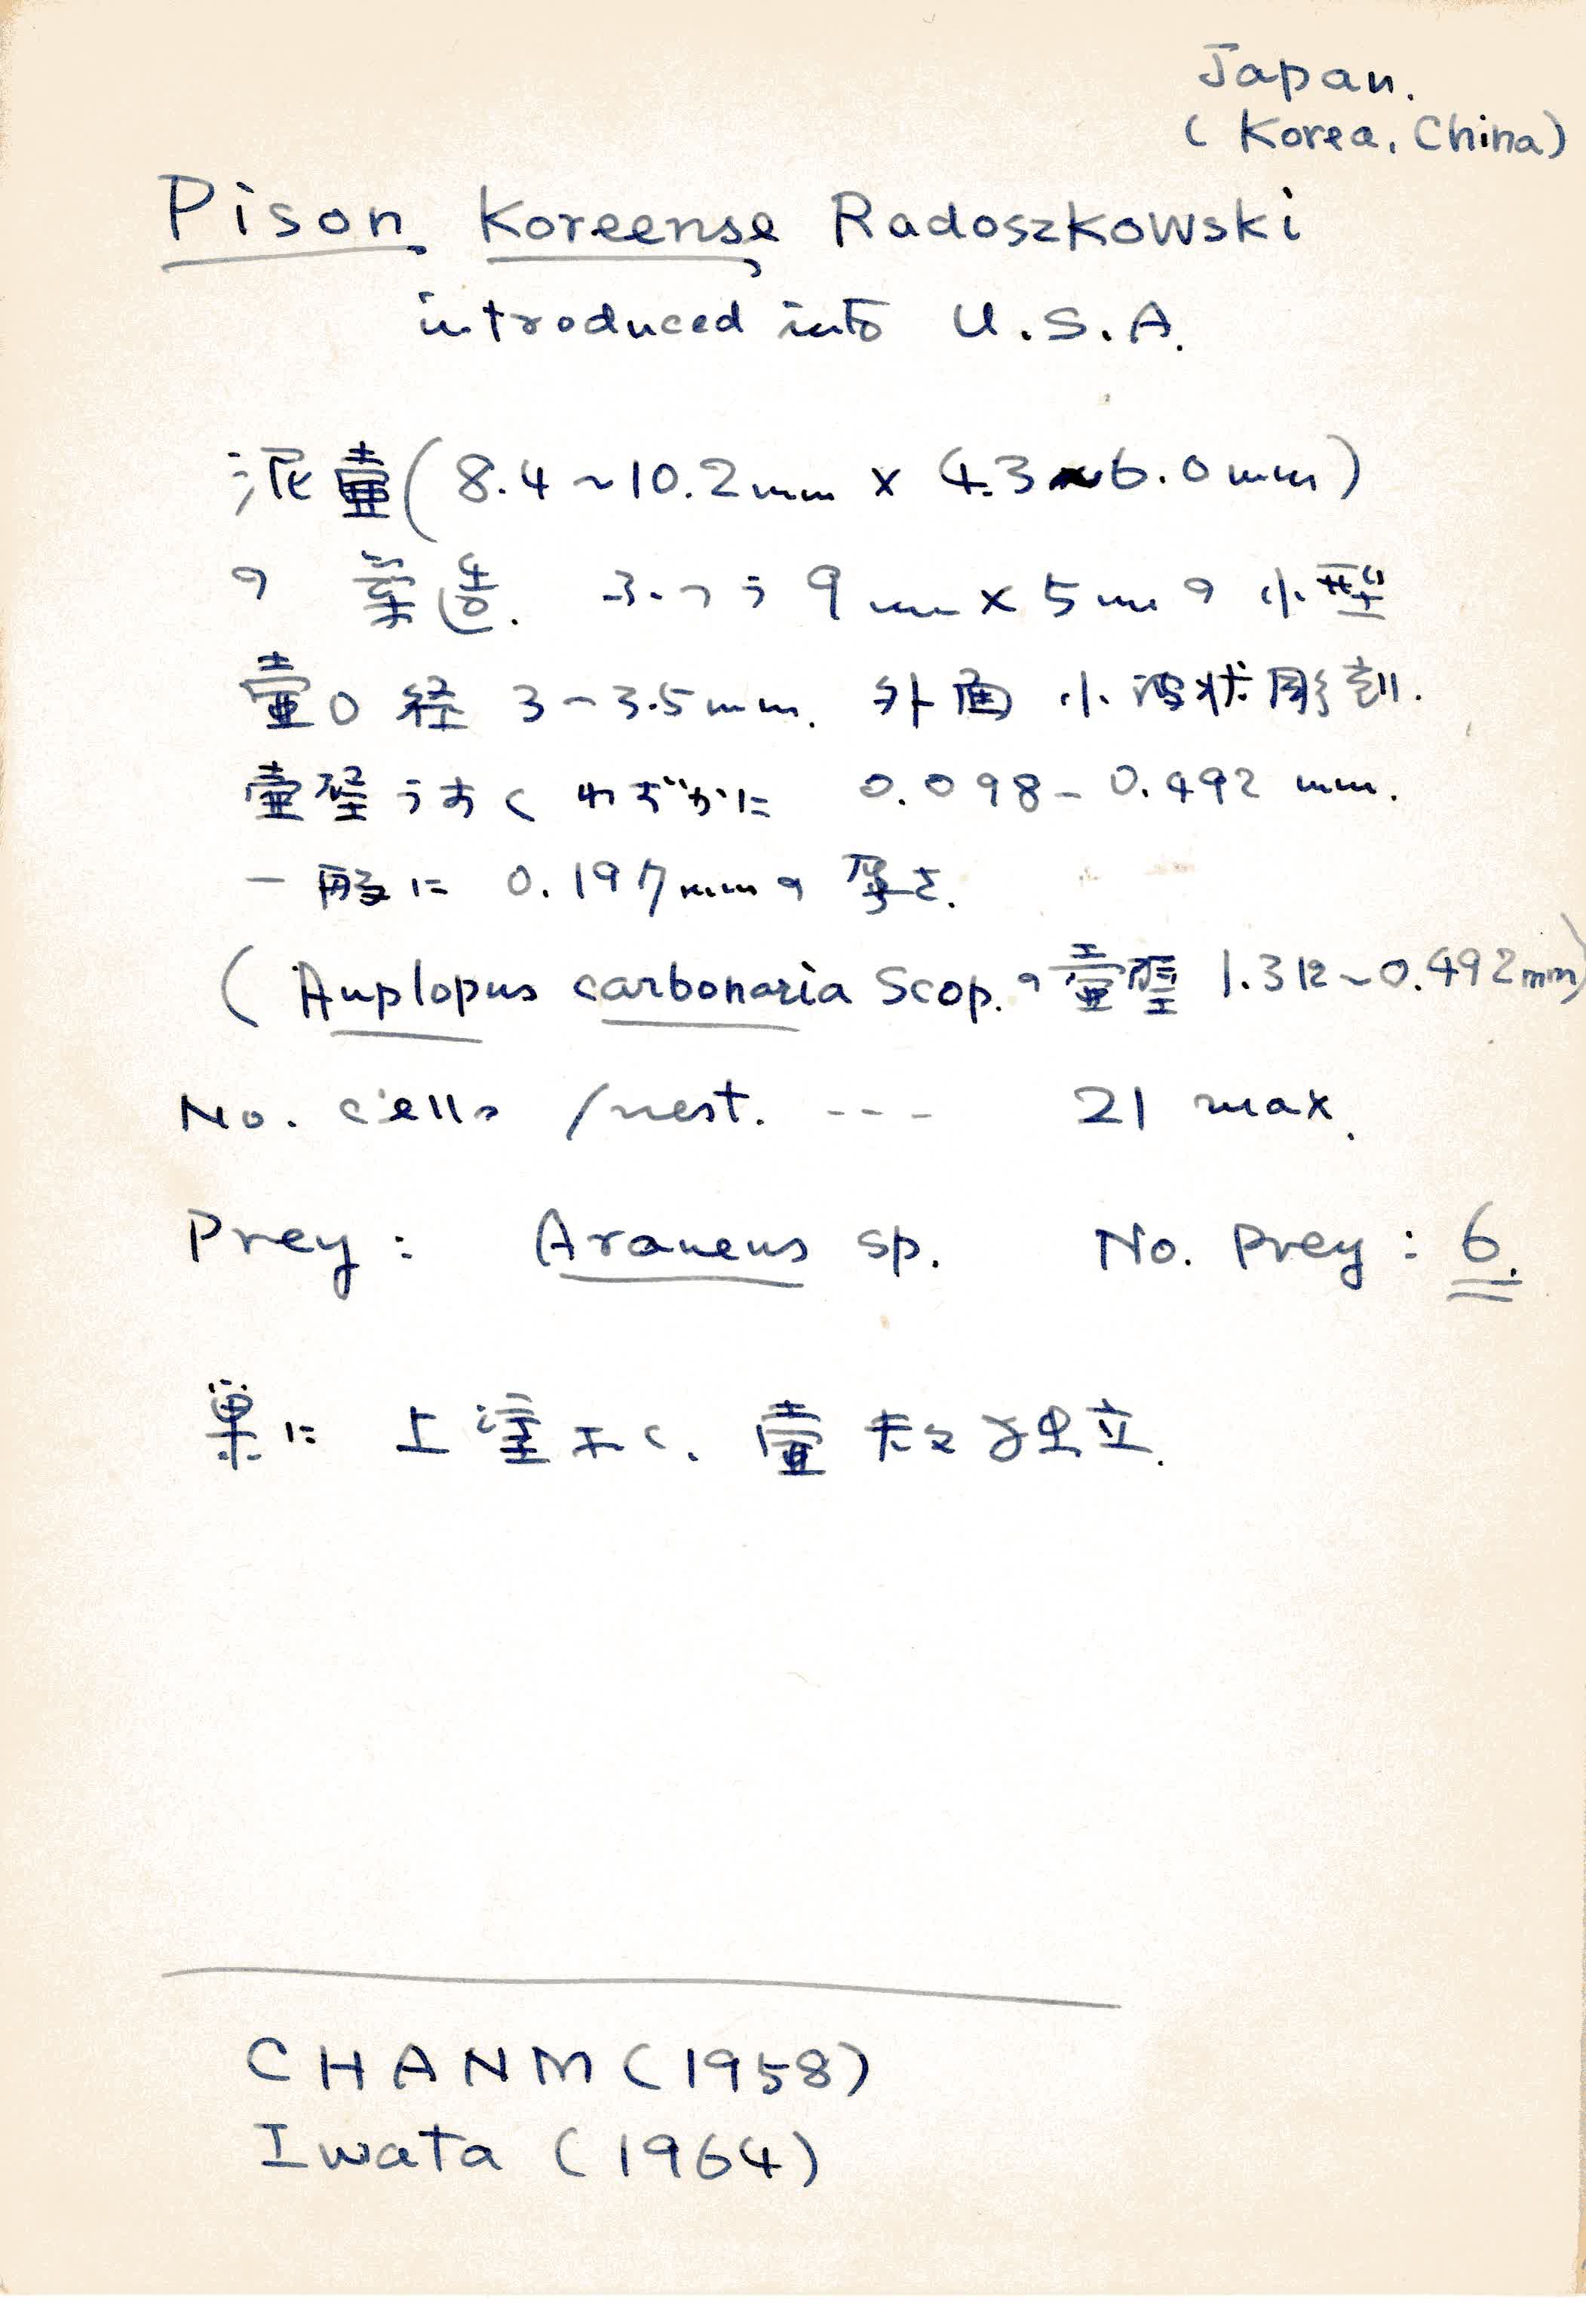 Japan.
(Korea, China)
Pison Koreense Radoszkowski
introduced into U.S.A.
泥壷(8.4~10.2mm x 4.3~6.0mm)
の築造. ふつう9mm x 5mmの小型
壷口径 3-3.5mm. 外面小波状彫刻.
壷壁うすくわずかに 0.098-0.492 mm.
一般に 0.197mmの厚さ.
(Auplopus carbonaria Scop.の壷壁 1.312~0.492mm)
No. cells /nest. --- 21 max.
Prey: Araneus sp. No. Prey: 6.
巣に上塗なく、壷夫々独立.
CHANM (1958)
Iwata (1964)